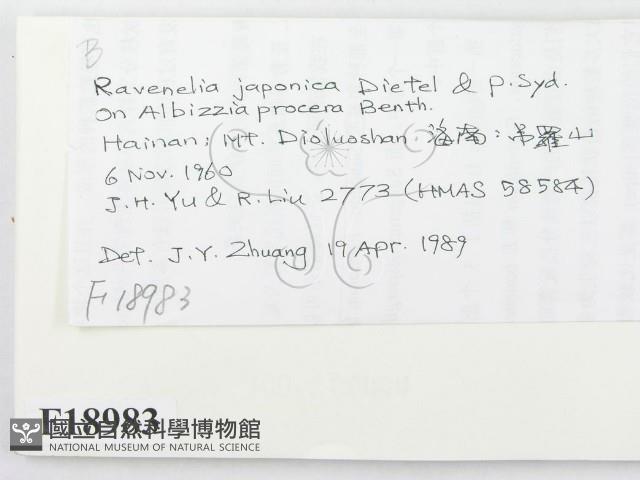 B
Ravenelia japonica Dietel & P. Syd.
on Albizzia procera Benth.
Hainan: Mt. Dioluoshan. 海南: 吊羅山
6 Nov. 1960
J.H. Yu & R. Liu 2773 (HMAS 58584)
Det. J.Y. Zhuang 19 Apr. 1989
F18983
F18983
國立自然科學博物館
NATIONAL MUSEUM OF NATURAL SCIENCE